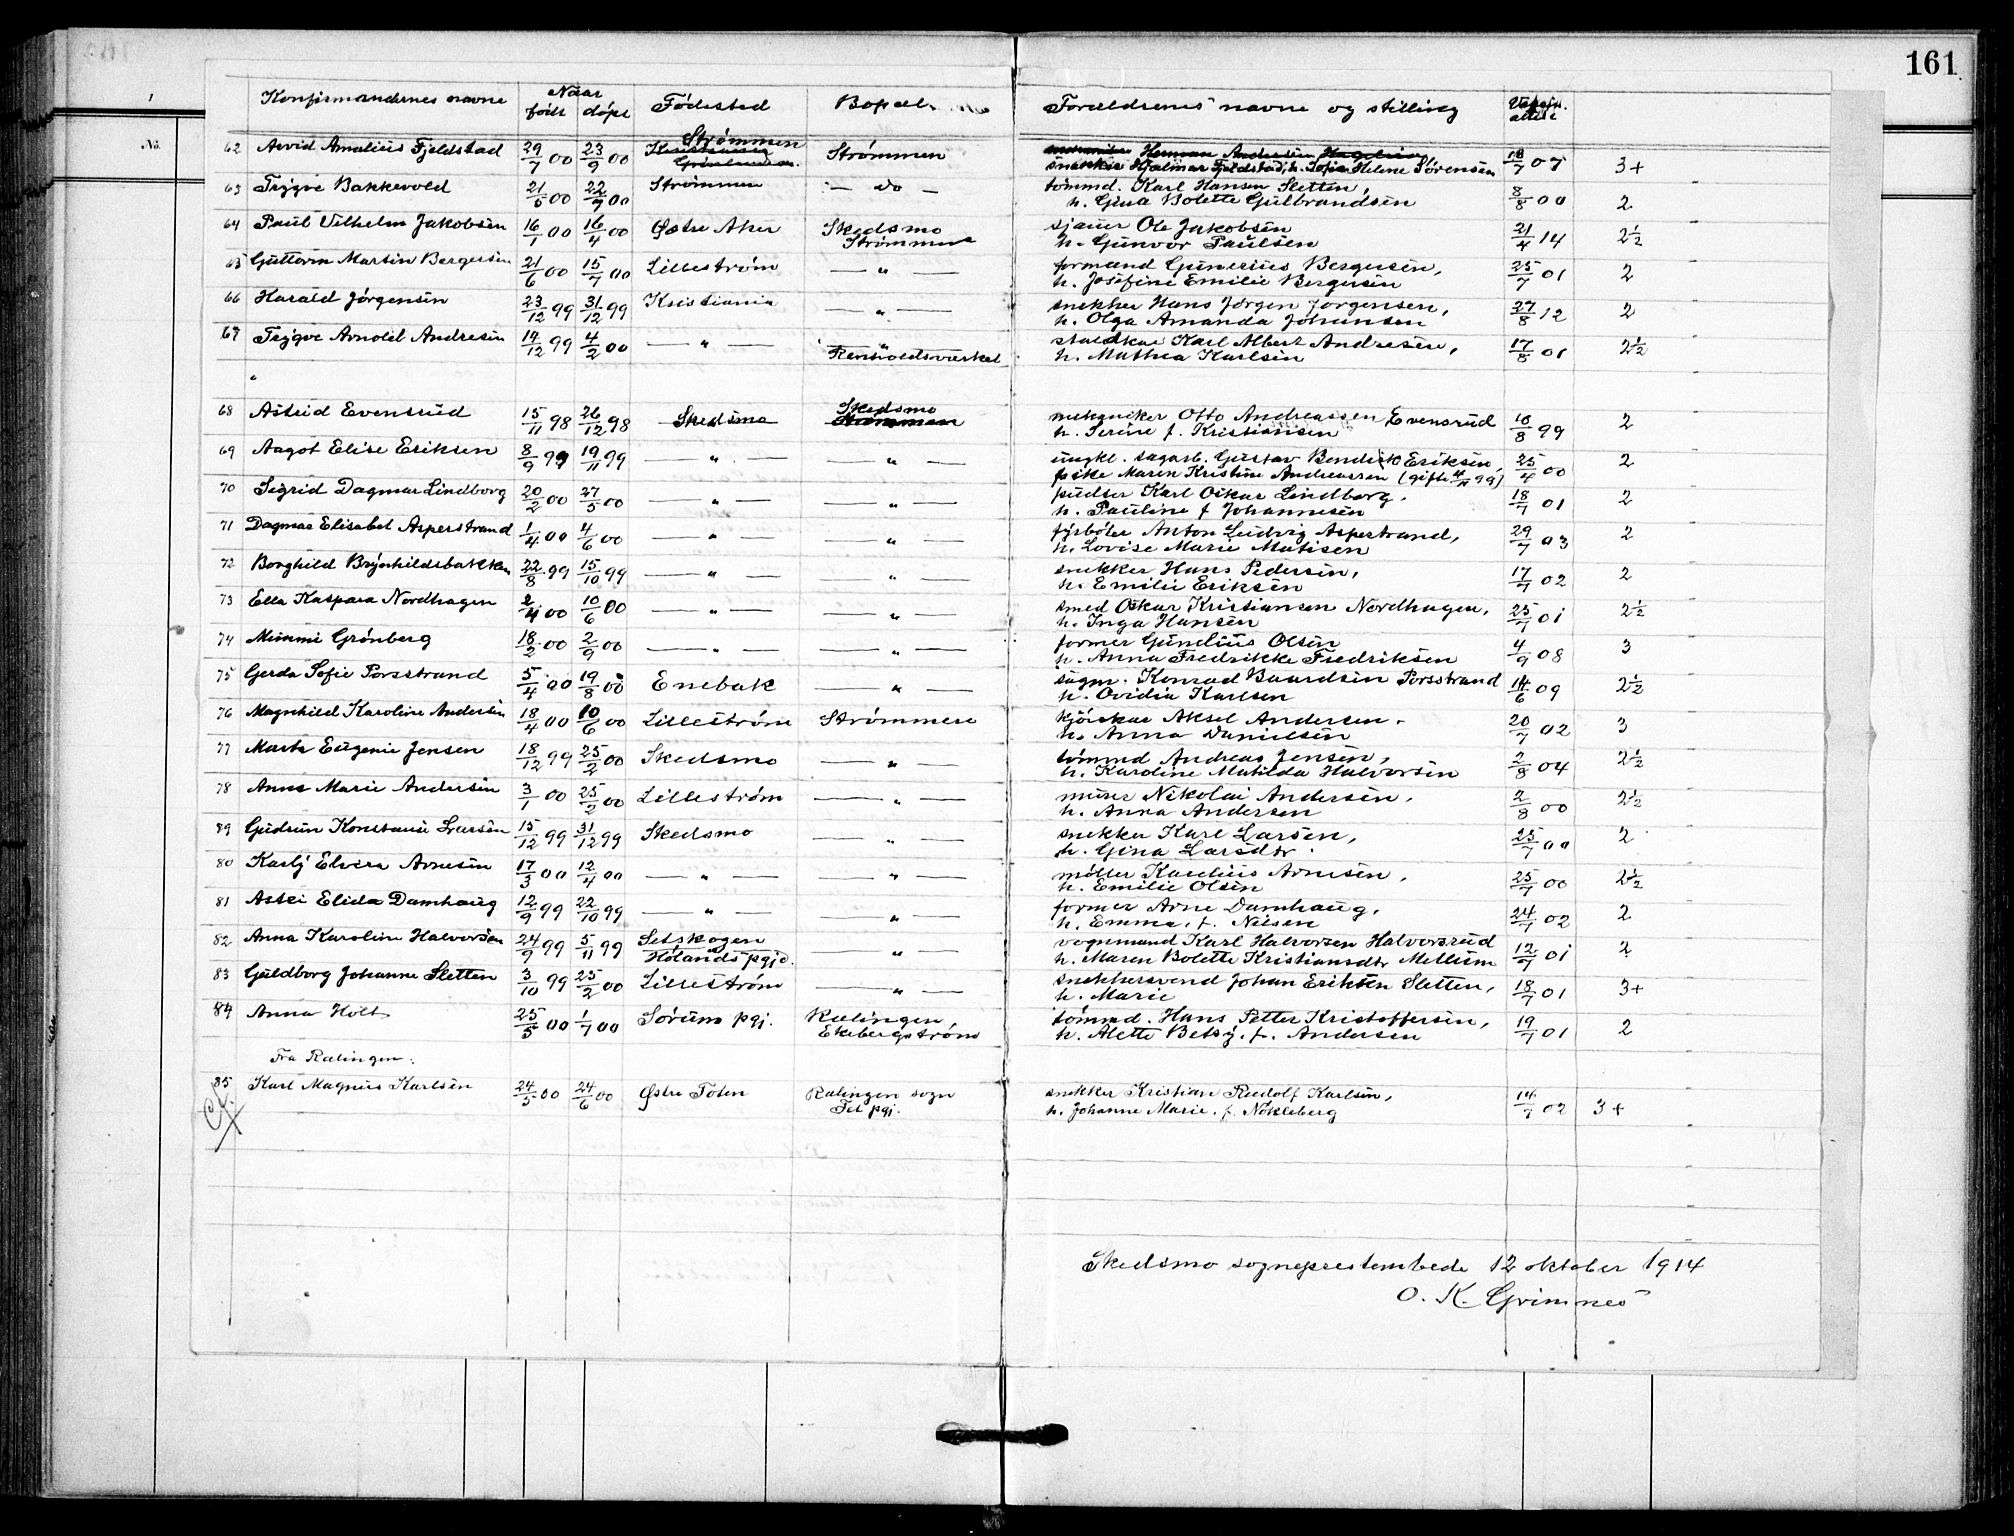 161
1
No.
Konfirmandernes navne Naar født døpt Fødested Bopæl Forældrenes navne og stilling Vaksin. attest
62 Arvid Amalius Fjeldstad 29/7 00 23/9 00 Strømmen Strømmen snekker Hjalmar Fjeldstad, h. Sofie Helene Sørensen 18/7 07 3+
63 Trygve Bakkevold 21/5 00 22/7 00 Strømmen — do — tømmd. Karl Hansen Sletten,
h. Gina Bolette Gulbrandsen 8/8 00 2
64 Paul Vilhelm Jakobsen 16/1 00 16/4 00 Østre Aker Skedsmo
Strømmen sjauer Ole Jakobsen
h. Gunvor Paulsen 21/4 14 2½
65 Guttorm Martin Bergersen 21/6 00 15/7 00 Lillestrøm — " — formand Gunerius Bergersen,
h. Josefine Emilie Bergersen 25/7 01 2
66 Harald Jørgensen 23/12 99 31/12 99 Kristiania — " — snekker Hans Jørgen Jørgensen,
h. Olga Amanda Johansen 27/8 12 2
67 Trygve Arnold Andresen 14/12 99 4/2 00 — " — "
Renholdsverket staldkar Karl Albert Andresen,
h. Mathea Karlsen 17/8 01 2½
68 Astrid Evensrud 15/11 98 26/12 98 Skedsmo Skedsmo
Strømmen mekaniker Otto Andreassen Evensrud
h. Serine f. Kristiansen 10/8 99 2
69 Aagot Elise Eriksen 8/9 99 19/11 99 — " — — " — ungkl. sagarb. Gustav Bendik Eriksen,
pike Maren Kristine Andreassen (gifte 4/11 99) 25/4 00 2
70 Sigrid Dagmar Lindborg 20/2 00 27/5 00 — " — — " — pudser Karl Oskar Lindborg,
h. Pauline f Johannesen 18/7 01 2
71 Dagmar Elisabet Asperstrand 1/4 00 4/6 00 — " — — " — fyrbøter Anton Ludvig Asperstrand,
h. Lovise Marie Matisen 29/7 03 2
72 Borghild Brynhildsbakken 22/8 99 15/10 99 — " — — " — snekker Hans Pedersen,
h. Emilie Eriksen 17/7 02 2
73 Ella Kaspara Nordhagen 2/4 00 10/6 00 — " — — " — smed Oskar Kristiansen Nordhagen,
h. Inga Hansen 25/7 01 2½
74 Mimmi Grønberg 18/2 00 2/9 00 — " — — " — former Gunelius Olsen
h. Anna Fredrikke Fredriksen 4/9 08 3
75 Gerda Sofie Porsstrand 5/4 00 19/8 00 Enebak — " — sagm. Konrad Baardsen Porsstrand
h. Ovidia Karlsen 14/6 09 2½
76 Magnhild Karoline Andersen 18/4 00 10/6 00 Lillestrøm Strømmen kjørekar Aksel Andersen.
h. Anna Danielsen 20/7 02 3
77 Marta Eugenie Jensen 18/12 99 25/2 00 Skedsmo — " — tømmd Andreas Jensen,
h. Karoline Matilda Halvorsen 2/8 04 2½
78 Anna Marie Andersen 3/1 00 25/2 00 Lillestrøm — " — murer Nikolai Andersen,
h. Anna Andersen 2/8 00 2½
89 Gudrun Konstanse Larsen 15/12 99 31/12 99 Skedsmo — " — snekker Karl Larsen,
h. Gina Larsdtr. 25/7 00 2
80 Karly Elvira Arnesen 17/3 00 12/4 00 — " — — " — møller Karelius Arnesen,
h. Emilie Olsen 25/7 00 2½
81 Astri Elida Damhaug 12/9 99 22/10 99 — " — — " — former Arne Damhaug,
h. Emma, f. Nilsen 24/7 02 2
82 Anna Karoline Halvorsen 24/9 99 5/11 99 Setskogen
Hølands pgjd. — " — vognmand Karl Halvorsen Halvorsrud
h. Maren Bolette Kristiansdtr Mellem 12/7 01 2
83 Guldborg Johanne Sletten 3/10 99 25/2 00 Lillestrøm — " — snekkersvend Johan Eriksen Sletten,
h. Marie 18/7 01 3+
84 Anna Holt 25/5 00 1/7 00 Sørum pgj. Rælingen
Ekebergstrøm tømmd. Hans Petter Kristoffersen,
h. Alette Betsy. f. Andersen 19/7 01 2
Fra Rælingen:
85 Karl Magnus Karlsen 24/5 00 24/6 00 Østre Toten Rælingen sogn
Fet pgj. snekker Kristian Rudolf Karlsen,
h. Johanne Marie. f. Nøkleberg 14/7 02 3+
Skedsmo sogneprestembede 12 oktober 1914
O. K. Grimnes